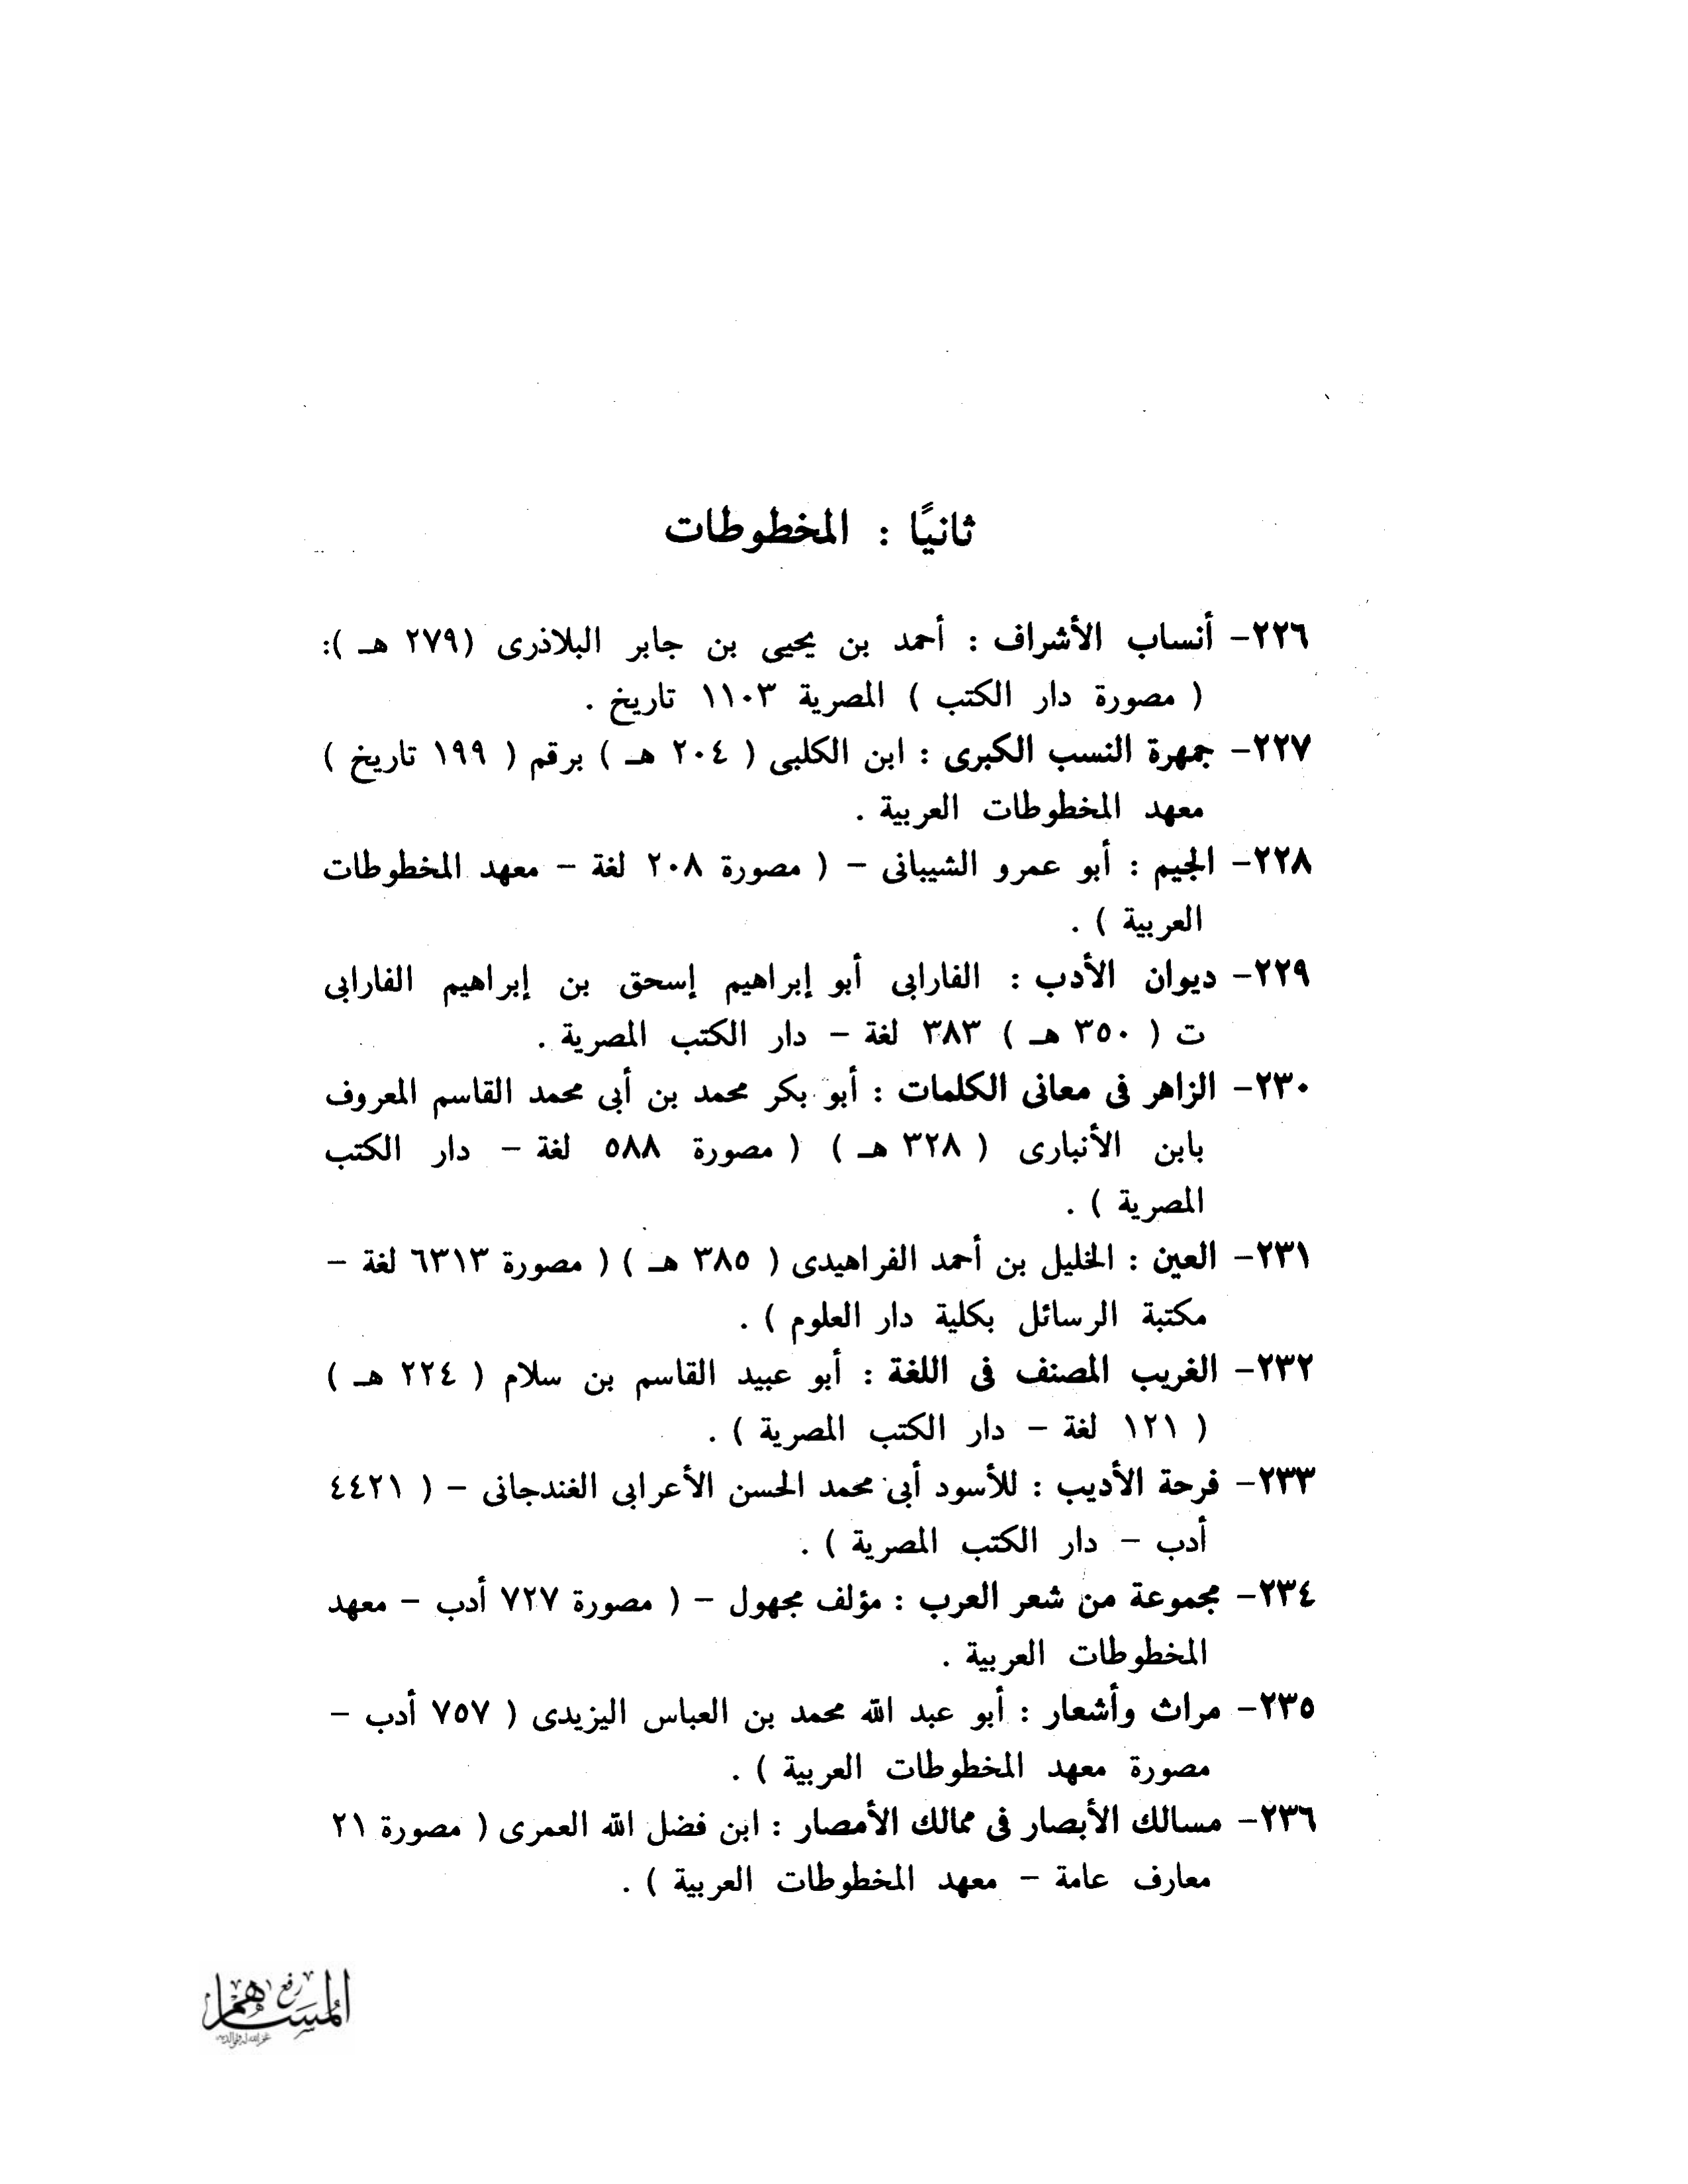 ثانيًا : المخطوطات
٢٢٦- أنساب الأشراف : أحمد بن يحيى بن جابر البلاذرى (٢٧٩ هـ ):
( مصورة دار الكتب ) المصرية ١١٠٣ تاريخ .
٢٢٧- جمهرة النسب الكبرى : ابن الكلبى ( ٢٠٤ هـ ) برقم ( ١٩٩ تاريخ )
معهد المخطوطات العربية .
٢٢٨- الجيم : أبو عمرو الشيبانى - ( مصورة ٢٠٨ لغة - معهد المخطوطات
العربية ) .
٢٢٩- ديوان الأدب : الفارابى أبو إبراهيم إسحق بن إبراهيم الفارابى
ت ( ٣٥٠ هـ ) ٣٨٣ لغة - دار الكتب المصرية .
٢٣٠- الزاهر فى معانى الكلمات : أبو بكر محمد بن أبى محمد القاسم المعروف
بابن الأنبارى ( ٣٢٨ هـ ) ( مصورة ٥٨٨ لغة - دار الكتب
المصرية ) .
٢٣١- العين : الخليل بن أحمد الفراهيدى ( ٣٨٥ هـ ) ( مصورة ٦٣١٣ لغة -
مكتبة الرسائل بكلية دار العلوم ) .
٢٣٢- الغريب المصنف فى اللغة : أبو عبيد القاسم بن سلام ( ٢٢٤ هـ )
( ١٢١ لغة - دار الكتب المصرية ) .
٢٣٣- فرحة الأديب : للأسود أبى محمد الحسن الأعرابى الغندجانى - ( ٤٤٢١
أدب - دار الكتب المصرية ) .
٢٣٤- مجموعة من شعر العرب : مؤلف مجهول - ( مصورة ٧٢٧ أدب - معهد
المخطوطات العربية .
٢٣٥- مراث وأشعار : أبو عبد الله محمد بن العباس اليزيدى ( ٧٥٧ أدب -
مصورة معهد المخطوطات العربية ) .
٢٣٦- مسالك الأبصار فى ممالك الأمصار : ابن فضل الله العمرى ( مصورة ٢١
معارف عامة - معهد المخطوطات العربية ) .
رفع
المساهم
غفر الله له ولوالديه